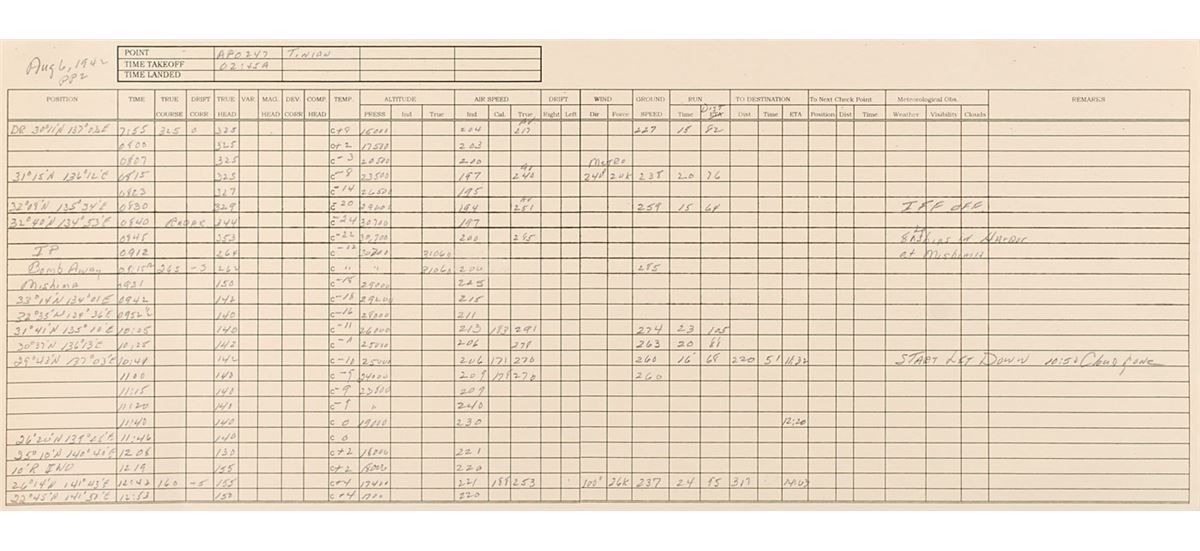 Aug 6, 1942
POINT APO 247 TINIAN
TIME TAKEOFF 02:45A
TIME LANDED
POSITION TIME TRUE COURSE DRIFT CORR TRUE HEAD VAR MAG. HEAD DEV. CORR COMP. HEAD TEMP. ALTITUDE PRESS Ind True AIR SPEED Ind Cal. True DRIFT Right Left WIND Dir Force GROUND SPEED RUN Time Dist TO DESTINATION Dist. Time ETA To Next Check Point Position Dist Time Meteorological Obs. Weather Visibility Clouds REMARKS
DR 30°11'N 137°03E 7:55 325 0 325 C+8 15000 204 AV 217 227 15 82
0800 325 17500 203
0807 325 C-3 20500 200 Metro
31°15'N 136°12'E 0815 325 C-8 23500 197 AV 240 240° 20K 238 20 76
0823 327 C-14 26500 195
32°09'N 135°34'E 0830 329 C-20 29600 194 AV 251 259 15 64 IFF OFF
32°40'N 134°53'E 0840 RADAR 344 C-24 30700 197
0845 353 C-22 30,700 200 285 8 Ships in Harbor
IP 0912 264 31060 at Mishima
Bomb Away 09:15 265 -3 262 C " " 31060 200 285
Mishima 0921 150 C-18 29000 225
33°14'N 134°01'E 0942 142 C-18 29200 215
0952 140 C-16 28000 211
31°41'N 135°10'E 10:05 140 C-11 26000 213 183 291 274 23 105
30°37'N 136°13'E 10:25 142 25000 206 278 263 20 88
29°43'N 137°03'E 10:41 142 C-10 25000 206 171 270 260 16 68 220 51 11:32 START LET DOWN 10:50 Cloud gone
11:00 140 C-9 24000 209 178 270 260
11:15 140 C-9 23800 209
11:20 140 C-9 " 240
11:40 140 C 0 19000 230 12:20
26°20'N 139°05'E 11:46 140 C 0
25°10'N 140°40'E 12:08 130 C+2 18000 221
10'R IWO 12:19 155 C+2 18000 220
12:42 160 -5 155 C+4 17400 221 188 253 100° 26K 237 24 95 317
22°45'N 141°50'E 12:53 150 C+4 220